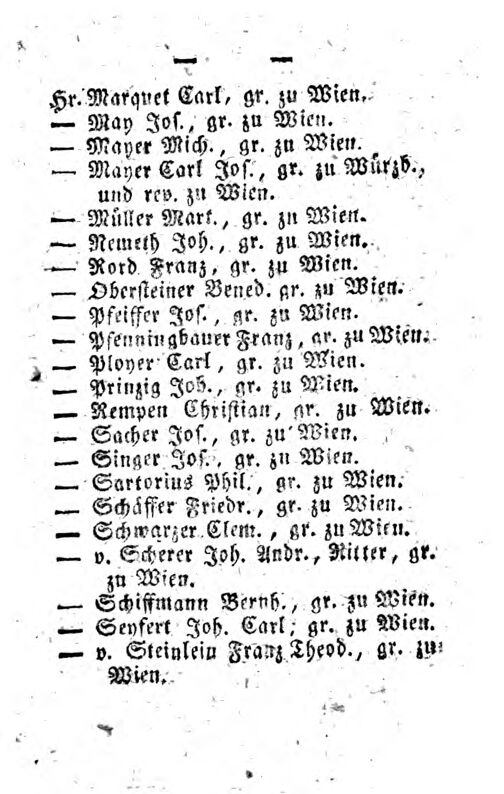 — —
Hr. Marquet Carl, gr. zu Wien.
— May Jos., gr. zu Wien.
— Mayer Mich., gr. zu Wien.
— Mayer Carl Jos., gr. zu Würzb.,
und rev. zu Wien.
— Müller Mark., gr. zu Wien.
— Nemeth Joh., gr. zu Wien.
— Nord Franz, gr. zu Wien.
— Obersteiner Bened. gr. zu Wien.
— Pfeiffer Jos., gr. zu Wien.
— Pfenningbauer Franz, gr. zu Wien.
— Ployer Carl, gr. zu Wien.
— Prinzig Joh., gr. zu Wien.
— Rempen Christian, gr. zu Wien.
— Sacher Jos., gr. zu Wien.
— Singer Jos., gr. zu Wien.
— Sartorius Phil., gr. zu Wien.
— Schäffer Friedr., gr. zu Wien.
— Schwarzer Clem., gr. zu Wien.
— v. Scherer Joh. Andr., Ritter, gr.
zu Wien.
— Schiffmann Bernh., gr. zu Wien.
— Seyfert Joh. Carl, gr. zu Wien.
— v. Steinlein Franz Theod., gr. zu
Wien.